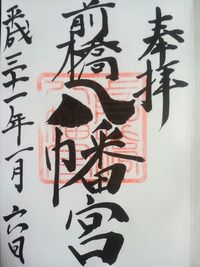 奉拝
前橋八幡宮
平成三十一年一月六日